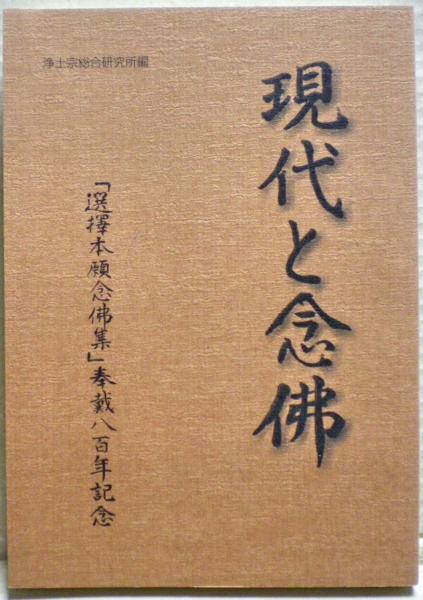 現代と念佛
「選擇本願念佛集」奉戴八百年記念
浄土宗総合研究所編